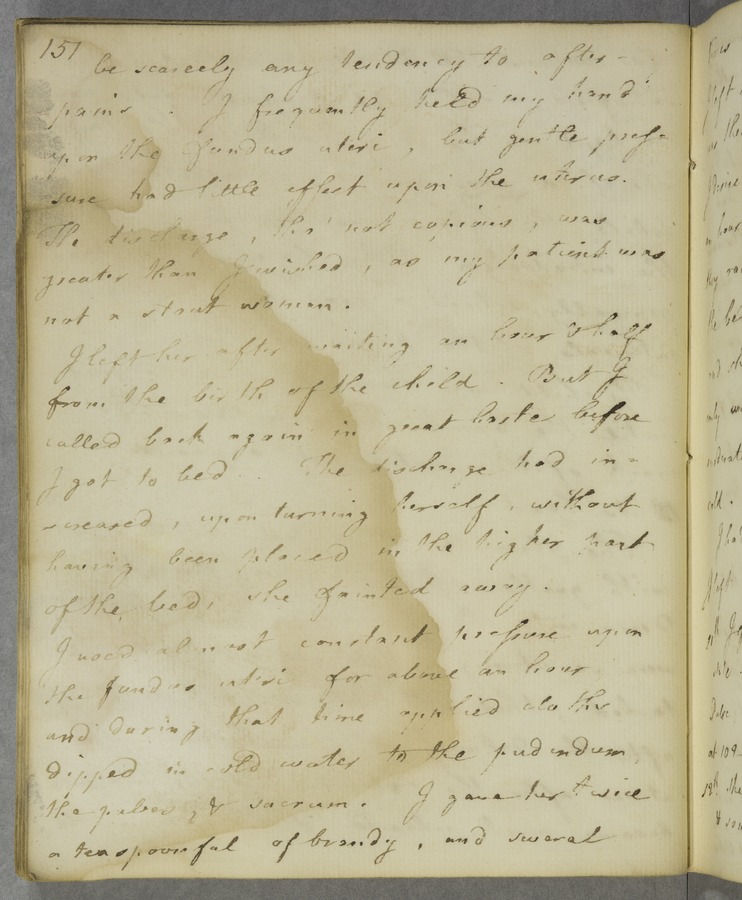 151
be scarcely any tendency to after-
pains. I frequently held my hand
upon the fundus uteri, but gentle pres-
sure had little effect upon the uterus.
The discharge, tho' not copious, was
greater than I wished, as my patient was
not a stout woman.
I left her after waiting an hour & half
from the birth of the child. But I
called back again in great haste before
I got to bed. The discharge had in-
creased, upon turning herself, without
having been placed in the higher part
of the bed, she fainted away.
I used almost constant pressure upon
the fundus uteri for above an hour
and during that time applied cloths
dipped in cold water to the pudendum,
the pubes, & sacrum. I gave her twice
a teaspoonful of brandy, and several